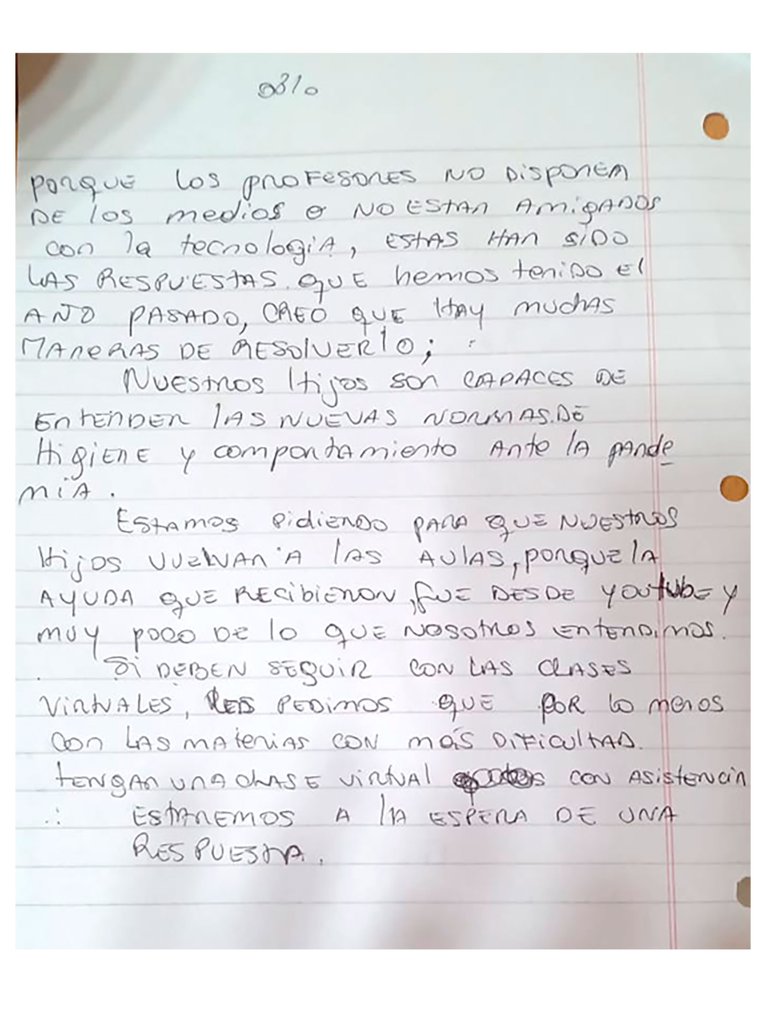 PORQUE LOS PROFESORES NO DISPONEN
DE LOS MEDIOS O NO ESTAN AMIGADOS
CON LA TECNOLOGIA, ESTAS HAN SIDO
LAS RESPUESTAS QUE HEMOS TENIDO EL
AÑO PASADO, CREO QUE HAY MUCHAS
MANERAS DE RESOLVERLO;
NUESTROS HIJOS SON CAPACES DE
ENTENDER LAS NUEVAS NORMAS DE
HIGIENE Y COMPORTAMIENTO ANTE LA PANDE
MIA.
ESTAMOS PIDIENDO PARA QUE NUESTROS
HIJOS VUELVAN A LAS AULAS, PORQUE LA
AYUDA QUE RECIBIERON, FUE DESDE YOUTUBE Y
MUY POCO DE LO QUE NOSOTROS ENTENDIMOS.
SI DEBEN SEGUIR CON LAS CLASES
VIRTUALES, LES PEDIMOS QUE POR LO MENOS
CON LAS MATERIAS CON MÁS DIFICULTAD.
TENGAN UNA CLASE VIRTUAL CON ASISTENCIA
ESTAREMOS A LA ESPERA DE UNA
RESPUESTA.